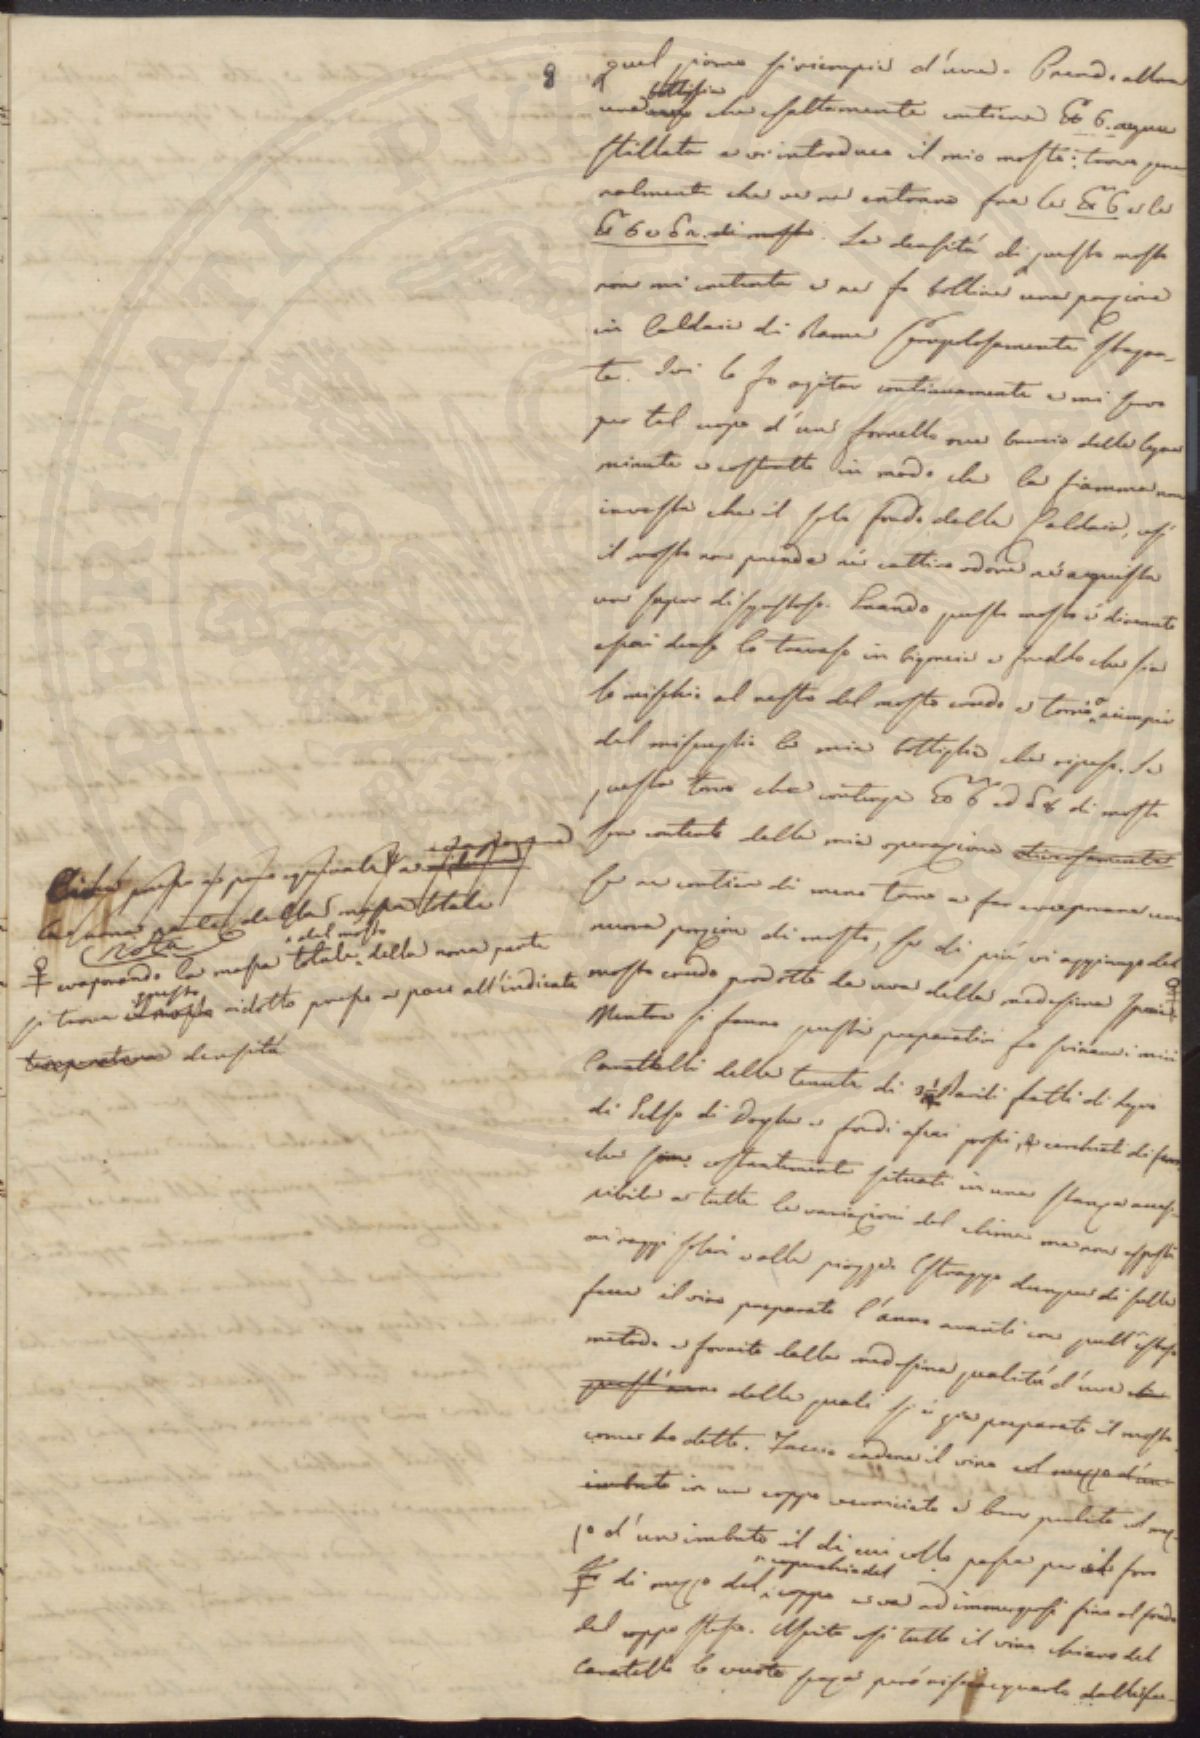 8
quel giorno si riempie d'uva. Prendo allora
una bottiglia che esattamente contiene 6. acqua
stillata e vi introduco il mio mosto: trovo gene
ralmente che ve ne entrano fra le 6 e le
6 e di mosto. La densità di questo mosto
non mi contenta e ne fo bollire una porzione
in Caldaie di Rame scrupolosamente stagna-
te. Ivi lo fo agitar continuamente e mi servo
per tal uopo d'un fornello ove brucio delle legne
minute e costrutto in modo che la fiamma non
investa che il solo fondo della Caldaia, così
il mosto non prende nè cattivo odore nè acquista
un sapor disgustoso. Quando questo mosto è divenuto
assai denso lo travaso in bigoncie e freddo che sia
lo mischio al resto del mosto crudo e torno a riempire
del miscuglio la mia bottiglia che ripeso. Se
questa trovo che contenga 6 ed 8 di mosto
son contento della mia operazione
se ne contien di meno torno a far evaporare una
nuova porzione di mosto, se di più vi aggiungo del
mosto crudo prodotto da uva della medesima specie
Mentre si fanno questi preparativi fo svinare i miei
Caratelli della tenuta di Barili fatti di legno
di Gelso di Doghe e fondi assai grossi, e cerchiati di ferro
che son costantemente situati in una stanza acces-
sibile a tutte le variazioni del clima ma non esposti
ai raggi solari e alla pioggia. Estraggo dunque di sulle
fecce il vino preparato l'anno avanti con quell'istesso
metodo e fornito dalla medesima qualità d'uva
quest'anno delle quali si è già preparato il mosto
come ho detto. Faccio cadere il vino col mezzo d'un
imbuto in un coppo verniciato e ben pulito col mez-
zo d'un imbuto il di cui collo passa per il foro
di mezzo del coperchio del coppo e va ad immergersi fino al fondo
del coppo stesso. Uscito così tutto il vino chiaro del
Caratello lo vuoto senza però risciacquarlo dalle fec-
Ciò presso a poco equivale a
la nona parte della massa totale
Nota
evaporando la massa totale del mosto della nona parte
si trova questo ridotto presso a poco all'indicata
temperatura densità